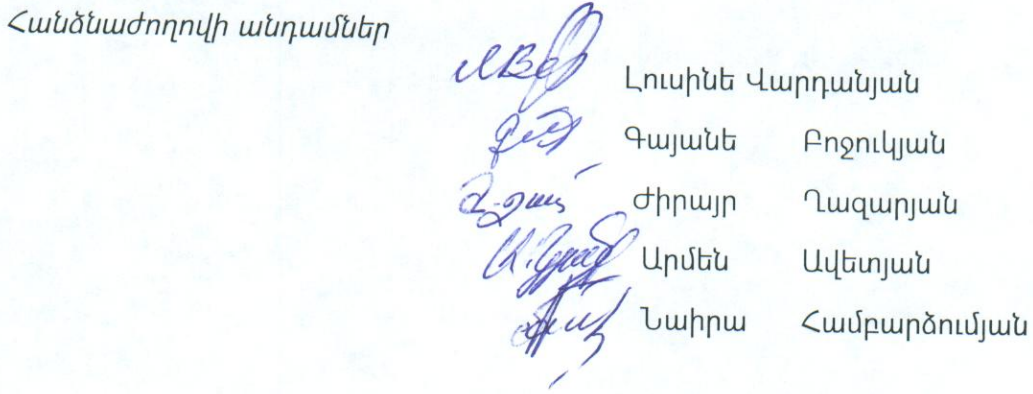 Հանձնաժողովի անդամներ
Լուսինե Վարդանյան
Գայանե Բոջուկյան
Ժիրայր Ղազարյան
Արմեն Ավետյան
Նաիրա Համբարձումյան